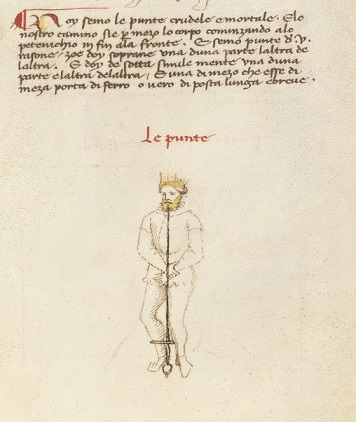 Noy semo le punte crudele e mortale. E lo
nostro camino sie per mezo lo corpo cominzando a lo
petenichio in fin ala fronte. E semo punte di V.
rasone, zoe doy soprane una duna parte laltra de
laltra. E doy de sotta simile mente una duna
parte e laltra de laltra, E una di mezo che esse di
meza porta di ferro o vero di posta lunga e breve.
Le punte